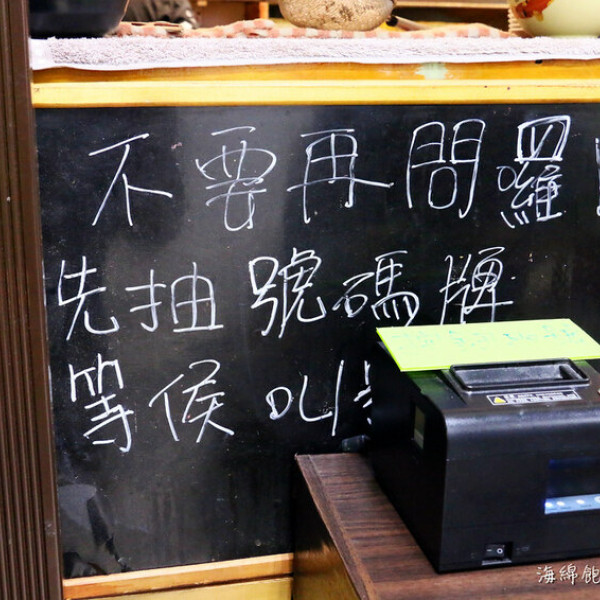 不要再問囉!
先抽號碼牌
等候叫
海綿飽